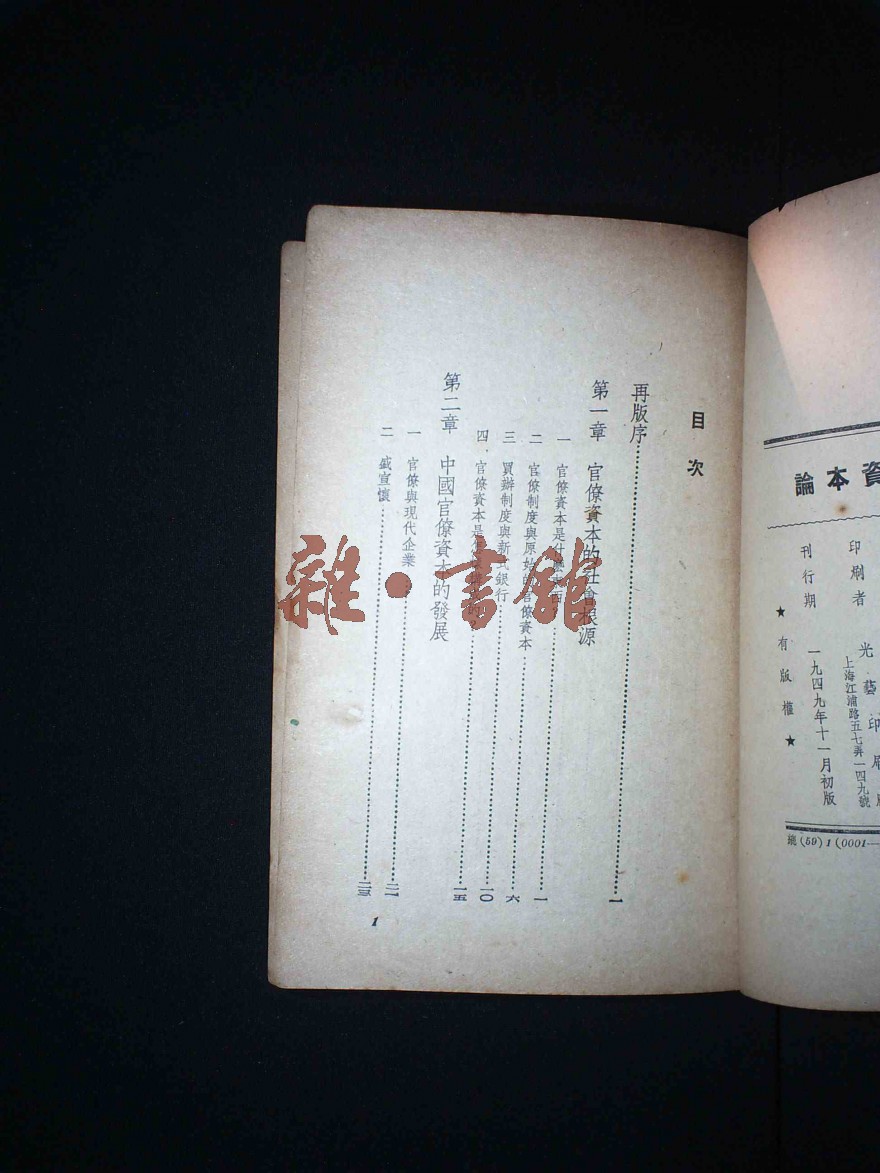 資本論
印刷者 光藝印刷
上海江浦路五七弄一四九號
刊行期 一九四九年十一月初版
★有版權★
總(59)1(0001—
目次
再版序……一
第一章 官僚資本的社會根源
一 官僚資本是什……一
二 官僚制度與原始的官僚資本……六
三 買辦制度與新式銀行……一〇
四 官僚資本是……一五
第二章 中國官僚資本的發展
一 官僚與現代企業……二一
二 盛宣懷……二三
1
雜·書館